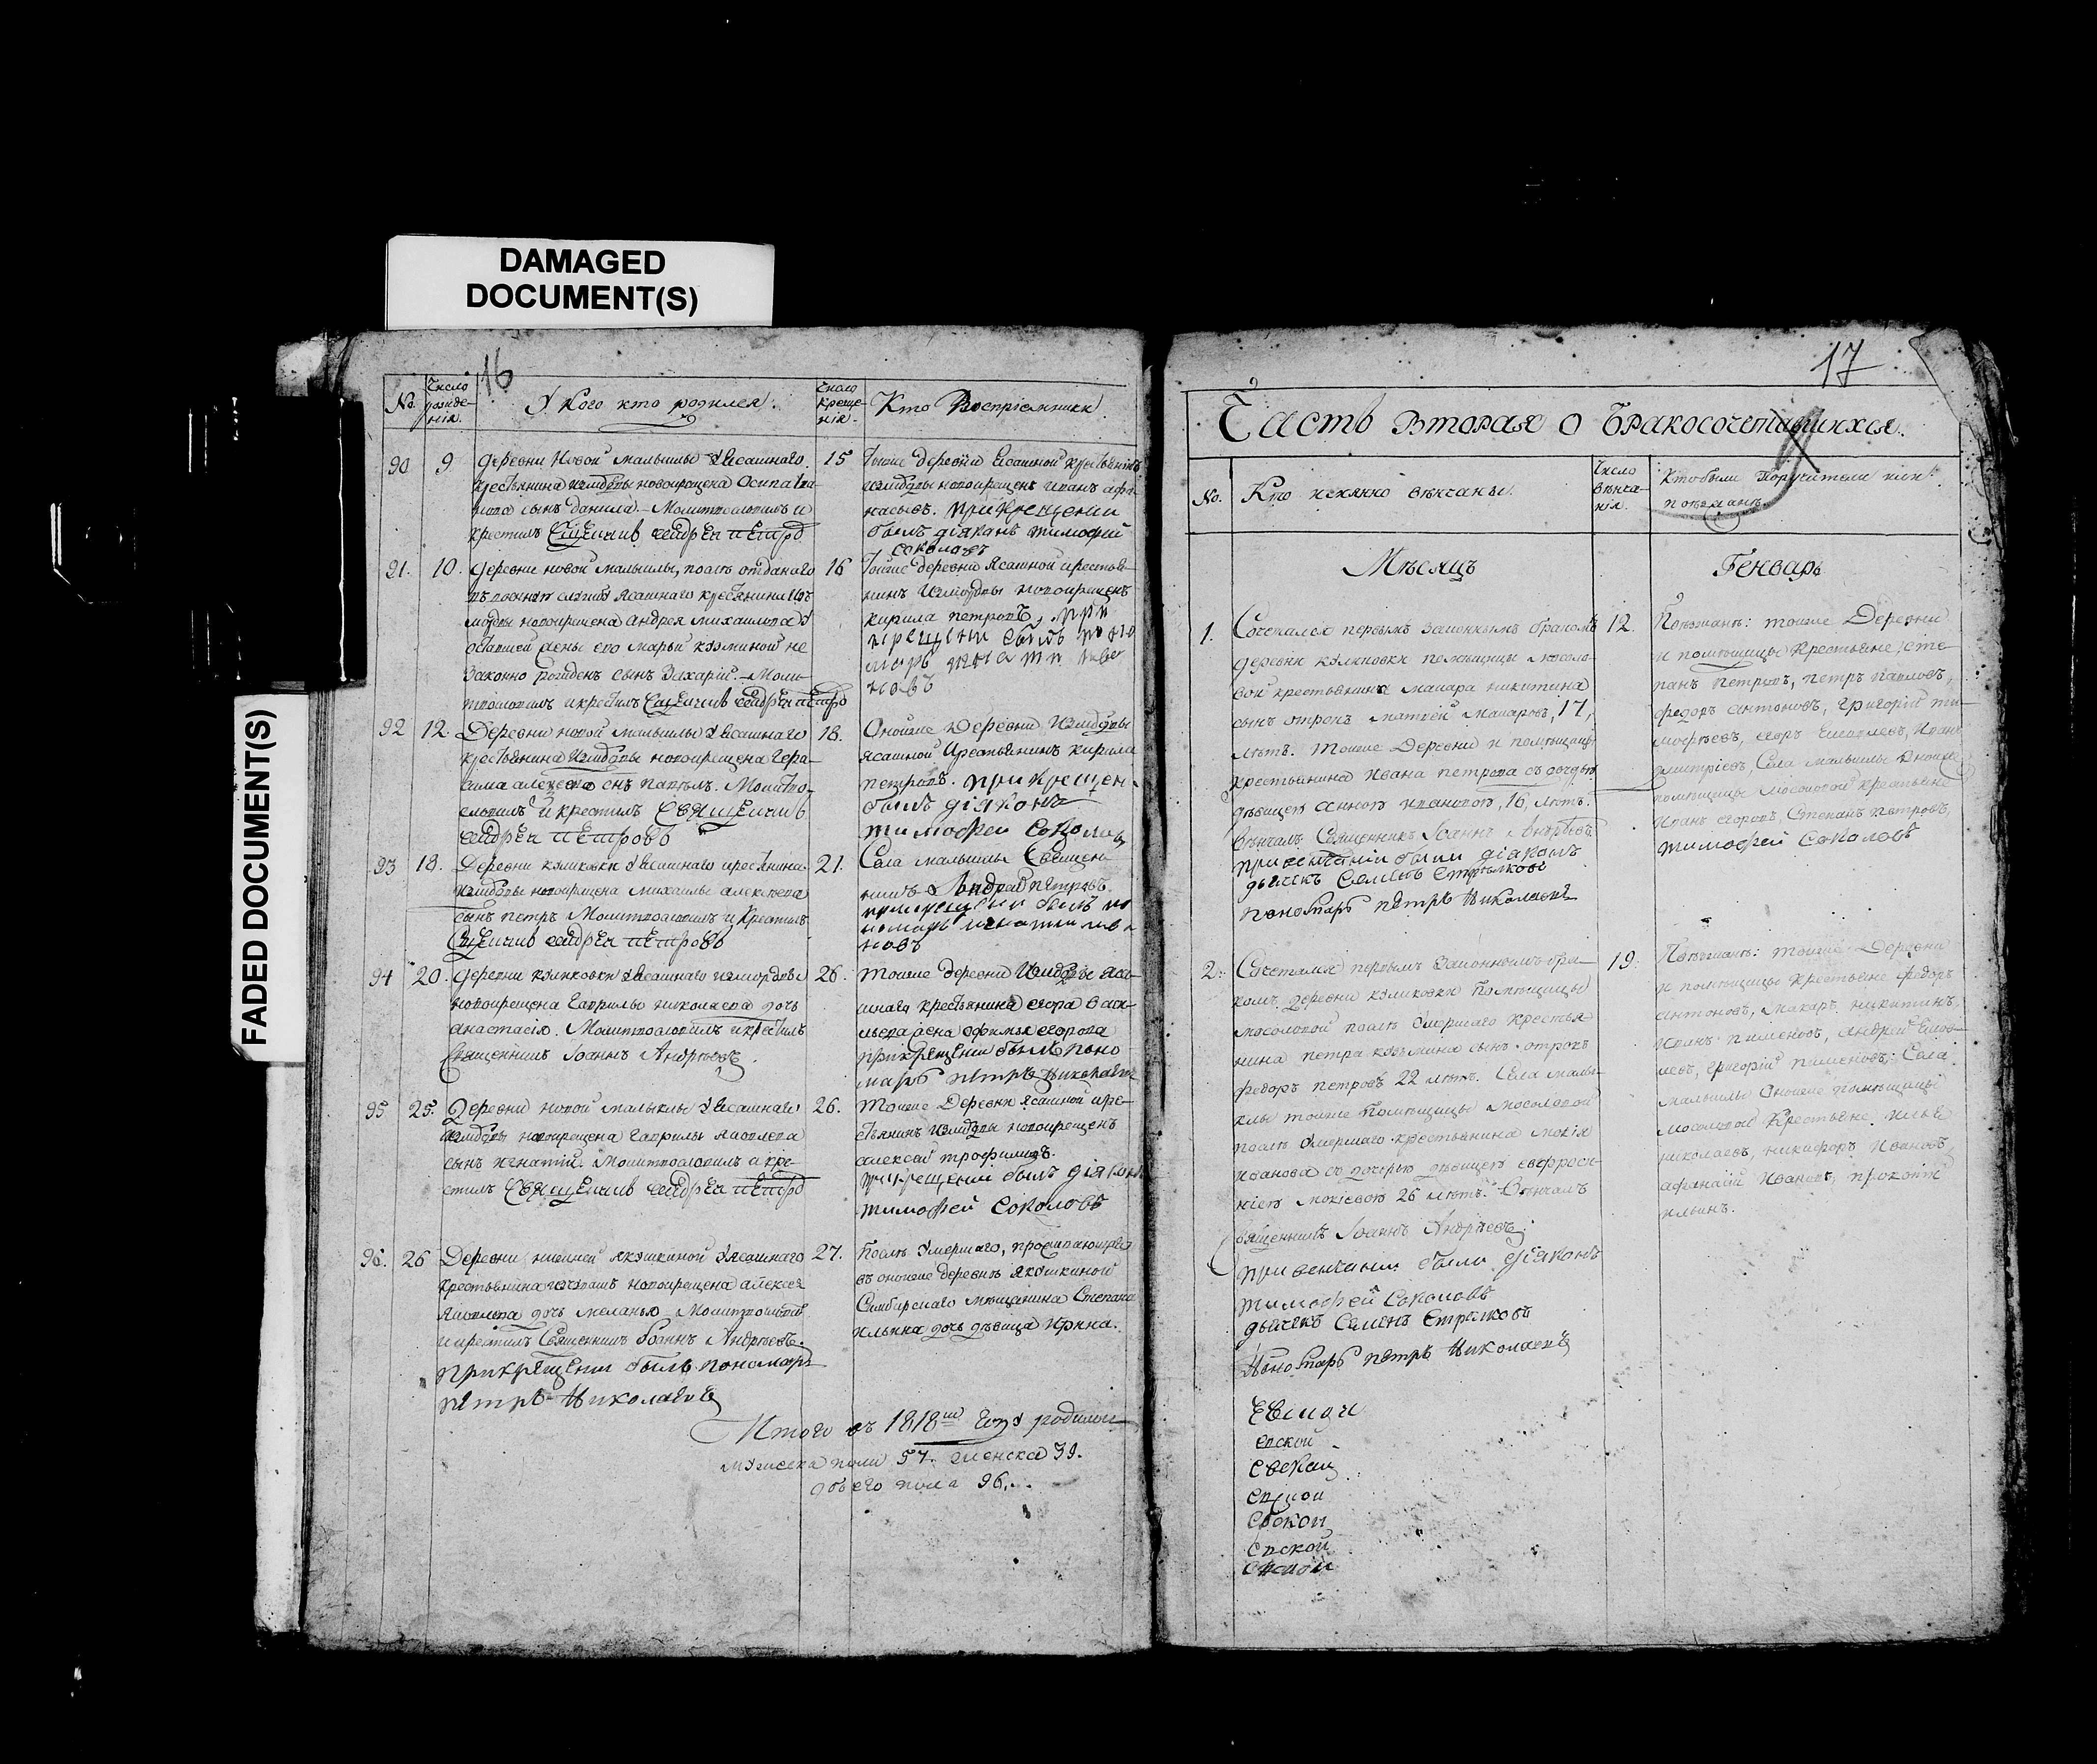 DAMAGED
DOCUMENT(S)
FADED DOCUMENT(S)
16
No.
Число рожде-
нія.
У Кого кто родился.
Число
креще-
нія.
Кто Воспріемники.
90
9
деревни Новой малыклы У Ясашнаго
крестьянина измордвы новокрещена Осипа
сынъ данила. Молитвословилъ и
крестилъ Священникъ андреи петро
15
Тойже деревни Ясашной крестьянинъ
измордвы новокрещенъ иванъ афо-
насьевъ. при крещении
былъ діяконъ тимофий
соколовъ
91.
10.
деревни новой малыклы, послѣ отданаго
Ясашнаго крестьянина изъ
мордвы новокрещена андрея михаилова У
оставшей жены его марьи кузминой не
законно рожденъ сынъ Захарій. Моли-
твословилъ и крестилъ Священникъ андреи петро
16
Тойже деревни Ясашной крестья-
нинъ измордвы новокрещенъ
кирила петровъ, при
крещени былъ поно
марь
92
12.
Деревни новой малыклы У Ясашнаго
крестьянина измордвы новокрещена Гера-
сима алексева сынъ павелъ. Молитво-
словилъ и крестилъ Священникъ
андреи петровъ
18.
Онойже Деревни измордвы
ясашной Крестьянинъ кирила
петровъ. при крещен.
былъ діяконъ
тимофей соколовъ
93
18.
Деревни куликовки У Ясашнаго крестьянина
измордвы новокрещена михаилы алексеева
сынъ петръ Молитвословилъ и крестилъ
Священникъ андреи петровъ
21.
Села малыклы Священ-
никъ Андрей петровъ.
при крещении былъ по
номарь
новъ
94
20.
деревни куликовки У Ясашнаго измордвы
новокрещена Гаврилы николаева дочь
анастасія. Молитвословилъ и крестилъ
Священникъ Іоаннъ Андреевъ.
26.
Тойже деревни измордвы яса-
шнаго крестьянина егора васи-
льева жена офимья егорова
при крещении былъ поно
марь петръ николаевъ
95
25.
Деревни новой малыклы У Ясашнаго
измордвы новокрещена Гаврилы яковлева
сынъ игнатій. Молитвословилъ и кре-
стилъ Священникъ андреи петро
26.
Тойже Деревни Ясашной кре-
стьянинъ измордвы новокрещенъ
алексей трофимовъ.
при крещении былъ діяконъ
тимофей соколовъ
96.
26
Деревни нижней якушкиной У Ясашнаго
крестьянина новокрещена алексея
яковлева дочь меланья Молитвословилъ
и крестилъ Священникъ Іоаннъ Андреевъ.
при крещении былъ пономарь
петръ николаевъ
27.
Послѣ Умершаго, проживающаго
въ онойже деревнѣ якушкиной
Симбирскаго мещанина Степана
ильина дочь дѣвица ирина.
Итого въ 1818м году родилось
мужеска пола 57. женска 39.
обоего пола 96.
17
Часть вторая о бракосочетавшихся.
No.
Кто и с кемъ вѣнчаны.
Число
вѣнча-
нія.
Кто были Поручители или
поезжанѣ
Мѣсяцъ
Генварь
1.
Сочетался первымъ законнымъ бракомъ
деревни куликовки помѣщицы мосоло-
вой крестьянина макара никитина
сынъ отрокъ матвей макаровъ, 17,
лѣтъ. Тойже Деревни и помѣщицы
крестьянина ивана петрова съ дочерью
дѣвицею анною ивановою, 16, лѣтъ.
вѣнчалъ Священникъ Іоаннъ Андреевъ
при венчании были діяконъ
дьячекъ Семенъ Стрелковъ
пономарь петръ николаевъ
12.
Поезжанѣ: тойже Деревни
и помѣщицы крестьяне: сте-
панъ петровъ, петръ павловъ,
федоръ антоновъ, григорій ти-
мофеевъ, егоръ иванъ
дмитріевъ, Села малыклы онойже
помѣщицы мосоловой крестьяне
иванъ егоровъ, Степанъ петровъ,
тимофей соколовъ
2.
Сочетался первымъ законнымъ бра-
комъ деревни куликовки Помѣщицы
мосоловой послѣ Умершаго крестья-
нина петра козьмина сынъ отрокъ
федоръ петровъ 22 лѣтъ. Села малы-
клы тойже Помѣщицы мосоловой
послѣ Умершаго крестьянина мокія
иванова съ дочерью дѣвицею евфроси-
ніею мокіевою 26 лѣтъ. Вѣнчалъ
священникъ Іоаннъ Андреевъ.
при венчании были діяконъ
тимофей соколовъ
дьячекъ Семенъ Стрелковъ
пономарь петръ николаевъ
19.
Поезжанѣ: тойже Деревни
и помѣщицы крестьяне федоръ
антоновъ, макаръ никитинъ,
иванъ пименовъ, андрей
григорій пименовъ: Села
малыклы Онойже помѣщицы
мосоловой крестьяне илья
николаевъ, никифоръ ивановъ,
афанасій ивановъ, прокопій
ильинъ.